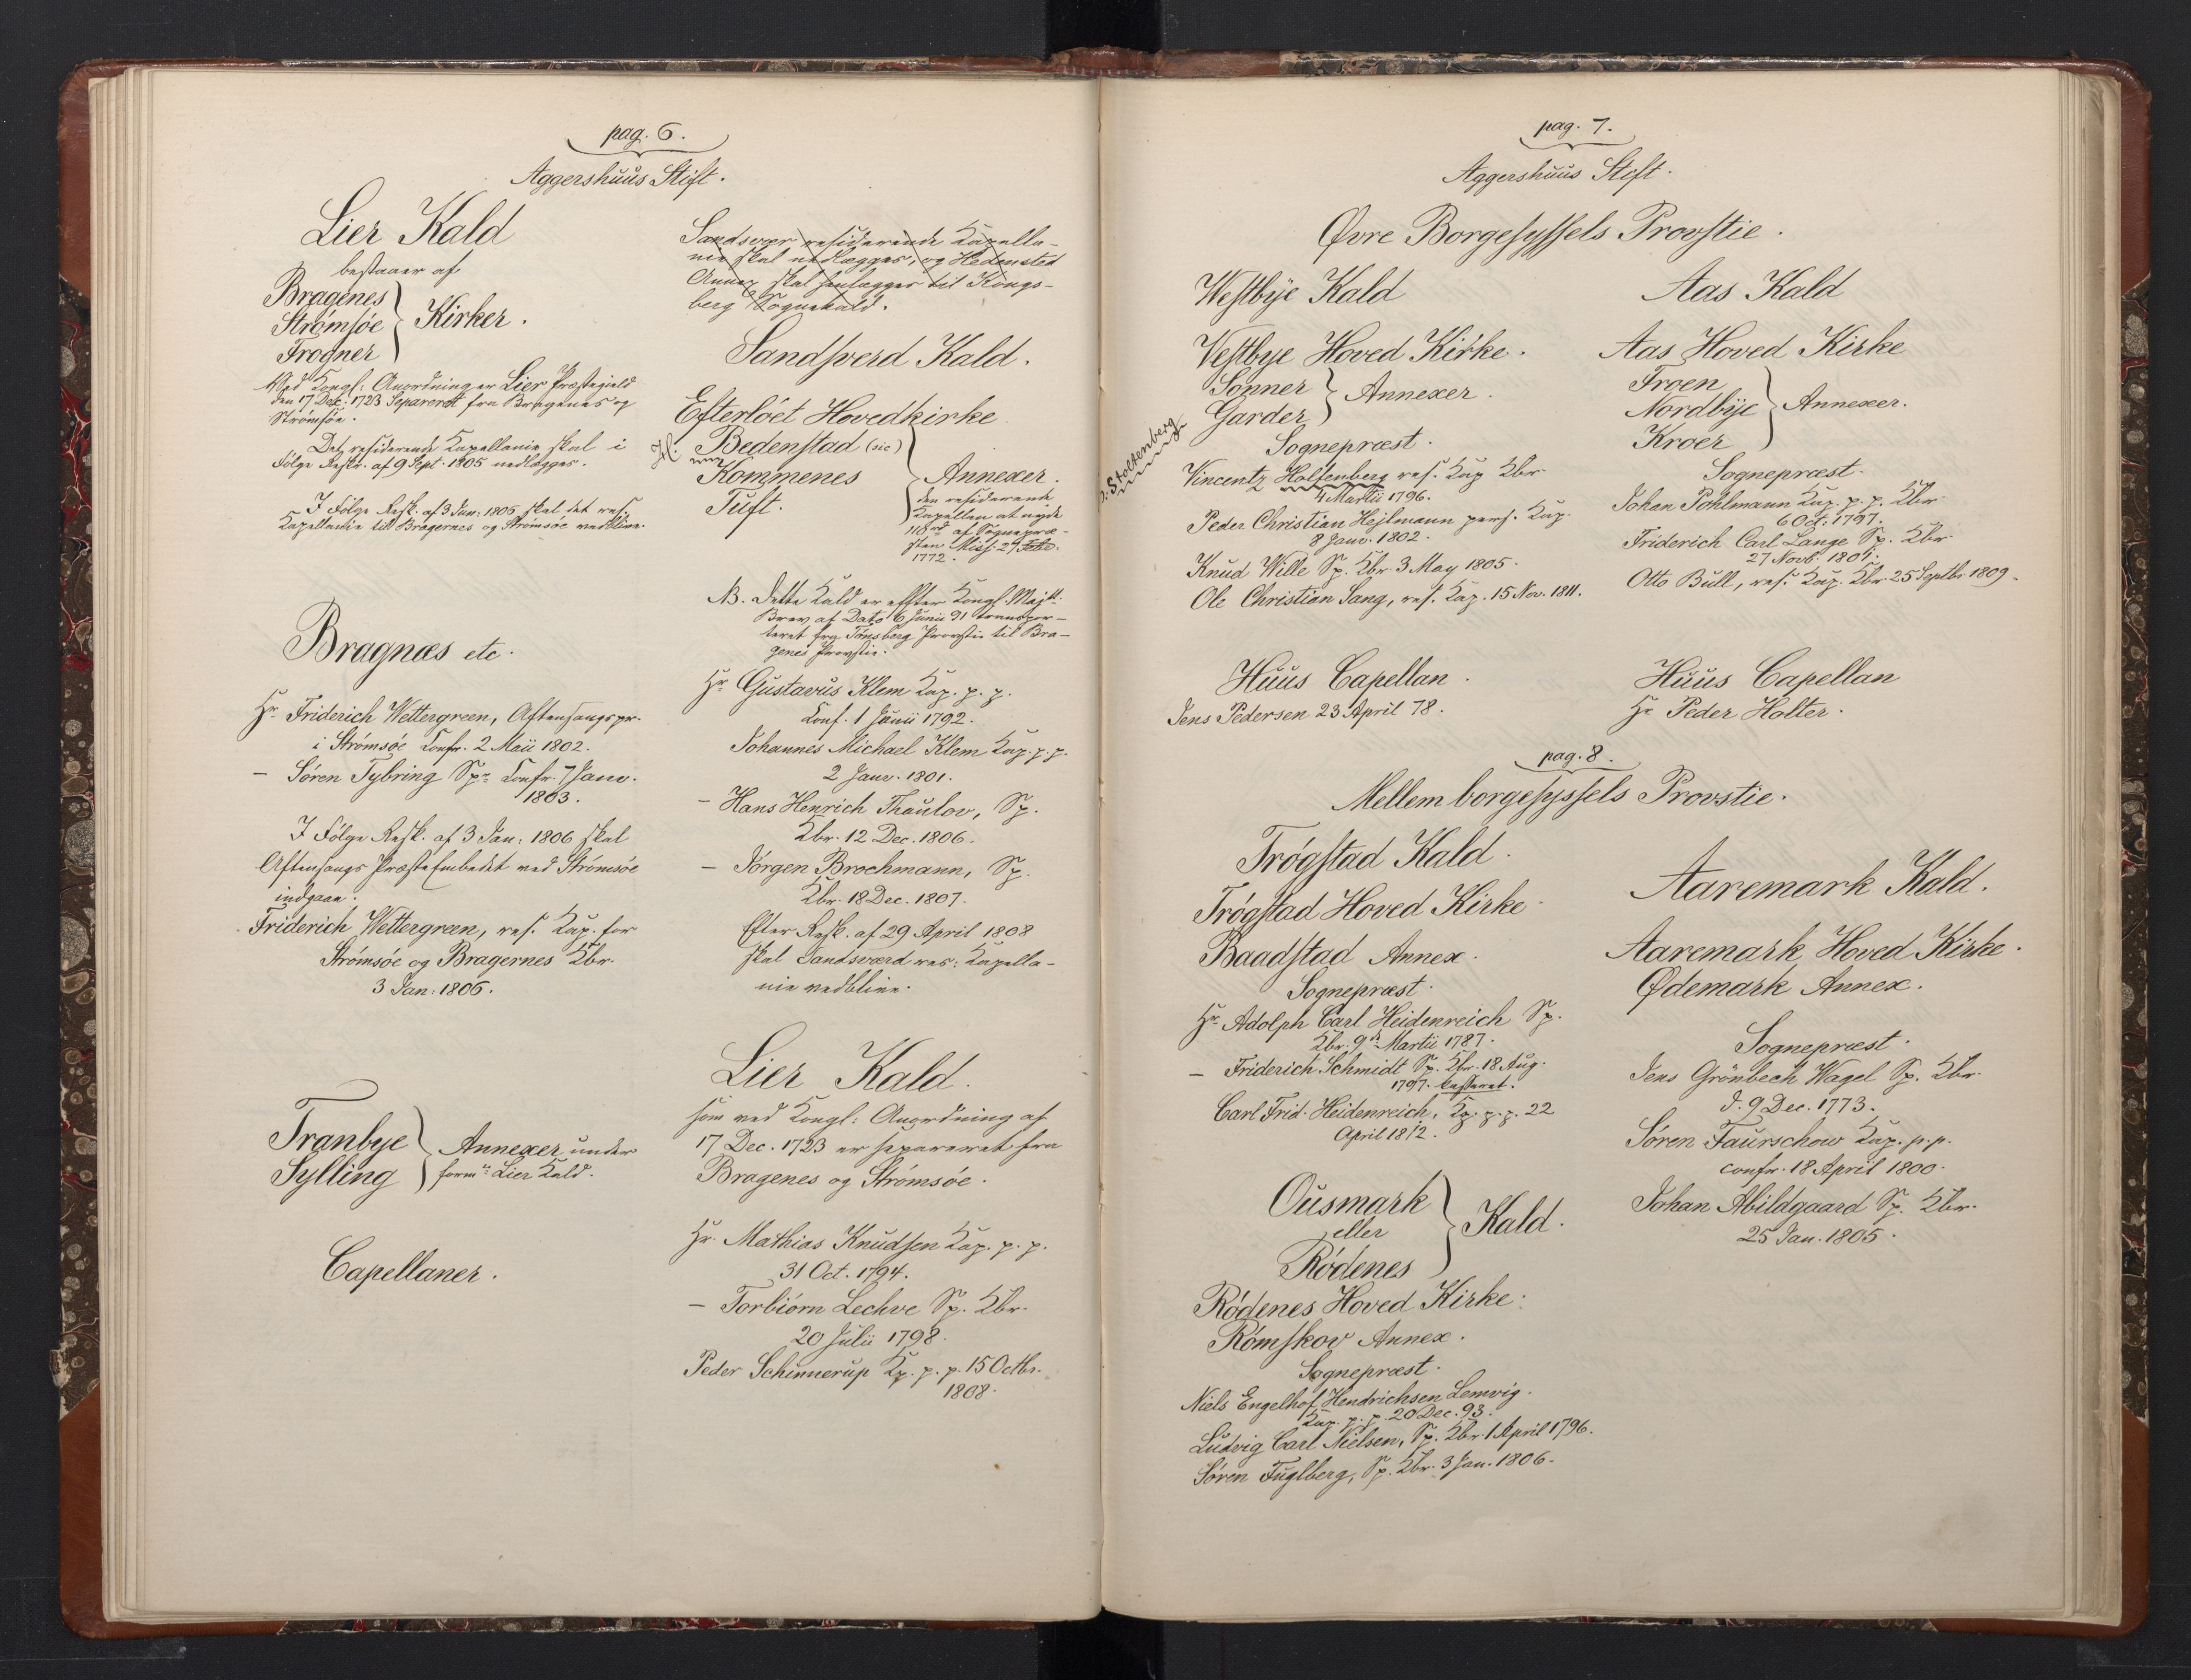 pag. 6.
Aggershuus Stift.
Lier Kald
bestaaer af
Bragenes
Strømsøe
Frogner
Kirker.
Ved Kongl: Anordning er Lier Præstegield
den 17 Dec: 1723 Separeret fra Bragenes og
Strømsøe.
Det residerende Kapellanie skal i
Følge Reskr. af 9 Sept. 1805 nedlægges.
I Følge Resk. af 3 Jan: 1806 skal det res.
Kapellanie til Bragernes og Strømsøe vedblive.
Bragnæs etc.
Hr. Friderich Wettergreen, Aftensangspr.
i Strømsøe Confr. 2 Maii 1802.
– Søren Tybring Spr. Confr. 7 Janv.
1803.
I Følge Resk. af 3 Jan: 1806 skal
Aftensangs Præste Embedet ved Strømsøe
indgaae.
Friderich Wettergreen, res. Kap. for
Strømsøe og Bragernes Kbr.
3 Jan: 1806.
Tranbye
Sylling
Annexer under
form: Lier Kald.
Capellaner.
Sandsvær residerende Kapella-
nie skal nedlægges, og Hedensted
Annex skal henlægges til Kongs-
berg Sognekald.
Sandsverd Kald.
Efterløet Hovedkirke
H: Bedenstad (sic)
Kommenes
Tuft.
Annexer.
den residerende
Kapellan at nyde
af Sognepræ-
sten Miss. 27
1772.
NB. Dette Kald er effter Kongl. Majts:
Brev af Dato 6 Junii 91 transpor-
teret fra Tønsberg Provstie til Bra-
genes Provstie.
Hr. Gustavus Klem Kap. p. p.
Conf. 1 Junii 1792.
Johannes Michael Klem Kap. p. p.
2 Janv. 1801.
– Hans Henrich Thaulov, Sp.
Kbr. 12 Dec. 1806.
– Jørgen Brochmann, Sp.
Kbr. 18 Dec. 1807.
Efter Resk. af 29 April 1808
skal Sandsværd res: Kapella-
nie vedblive.
Lier Kald.
som ved Kongl: Anordning af
17 Dec. 1723 er separeret fra
Bragenes og Strømsøe.
Hr. Mathias Knudsen Kap. p. p.
31 Oct. 1794.
– Torbiørn Lechve Sp. Kbr.
20 Julii 1798.
Peder Schinnerup Kp. p. p. 15 Octbr.
1808.
pag. 7.
Aggershuus Stift.
Øvre Borgesyssels Provstie.
Westbye Kald
Vestbye Hoved Kirke.
Sonner
Garder
Annexer.
Sognepræst.
Stoltenberg
Vincentz Holfenberg res. Kap Kbr.
4 Martii 1796.
Peder Christian Hejlmann pers. Kap.
8 Janv. 1802.
Knud Wille Sp. Kbr. 3 May 1805.
Ole Christian Sang, res. Kap. 15 Nov. 1811.
Huus Capellan.
Jens Pedersen 23 April 78.
Aas Kald
Aas Hoved Kirke
Froen
Nordbye
Kroer
Annexer.
Sognepræst.
Johan Pohlmann Kap. p. p. Kbr.
6 Oct: 1797.
Friderich Carl Lange Sp. Kbr.
27 Novb. 1801.
Otto Bull, res. Kap. Kbr. 25 Septbr 1809.
Huus Capellan
Hr. Peder Holter.
pag. 8.
Mellem borgesyssels Provstie.
Trøgstad Kald.
Trøgstad Hoved Kirke.
Baadstad Annex.
Sognepræst.
Hr. Adolph Carl Heidenreich Sp.
Kbr. 9de Martii 1787.
– Friderich Schmidt Sp. Kfr. 18 Aug.
1797. kasseret.
Carl Frid. Heidenreich. Kp. p. p. 22
April 1812.
Ousmark
eller
Rødenes
Kald.
Rødenes Hoved Kirke.
Rømskov Annex.
Sognepræst.
Niels Engelhof Hendrichsen Lemvig.
Kap. p. p. 20 Dec. 93.
Ludvig Carl Nielsen, Sp. Kbr. 1 April 1796.
Søren Fuglberg, Sp. Kbr. 3 Jan. 1806.
Aaremark Kald.
Aaremark Hoved Kirke.
Ødemark Annex.
Sognepræst.
Jens Grønbech Wagel Sp. Kbr.
d. 9 Dec. 1773.
Søren Faurschow Kap. p. p.
confr. 18 April 1800.
Johan Abildgaard Sp. Kbr.
25 Jan. 1805.